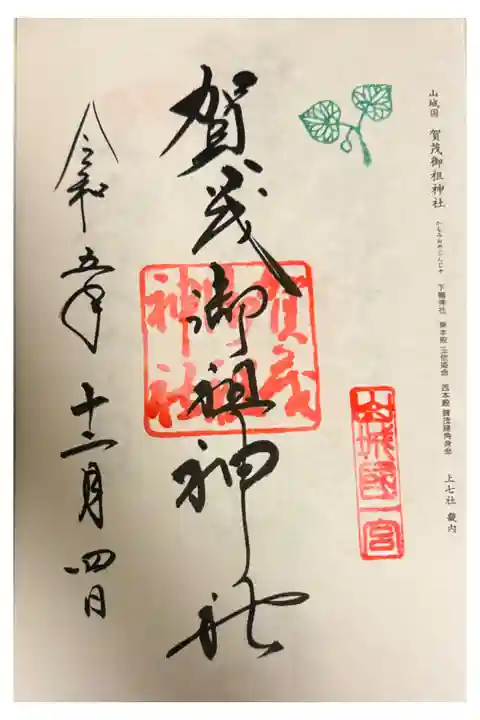 山城国 賀茂御祖神社 かもみおやじんじゃ 下鴨神社 東本殿 玉依姫命 西本殿 賀茂建角身命 上七社 畿内
山城國一宮
賀茂御祖神社
賀茂
御祖
神社
令和五年 十二月 四日